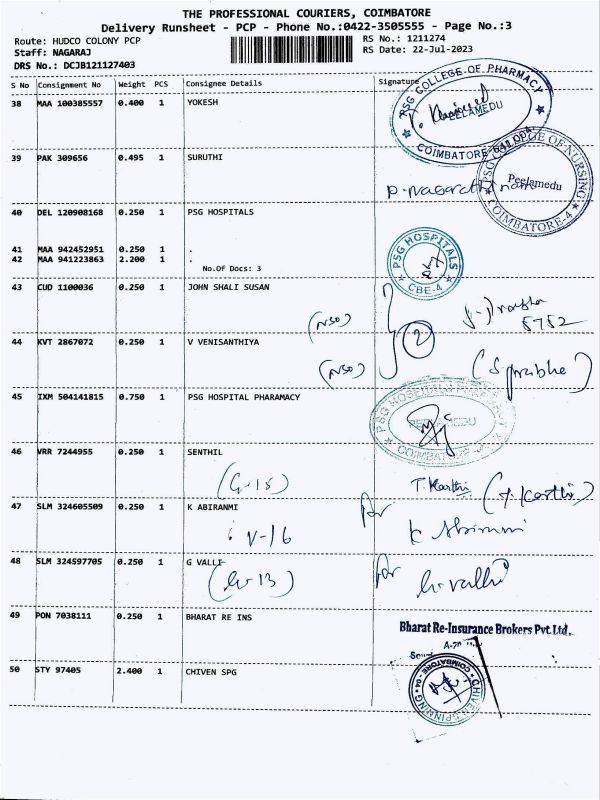 THE PROFESSIONAL COURIERS, COIMBATORE
Delivery Runsheet - PCP - Phone No.:0422-3505555 - Page No.:3
Route: HUDCO COLONY PCP
Staff: NAGARAJ
DRS No.: DCJB121127403
RS No.: 1211274
RS Date: 22-Jul-2023
S No Consignment No Weight PCS Consignee Details Signature
38 MAA 100385557 0.400 1 YOKESH
PSG COLLEGE OF PHARMACY
PEELAMEDU
COIMBATORE-641 004
39 PAK 309656 0.495 1 SURUTHI
PSG COLLEGE OF NURSING
Peelamedu
COIMBATORE-4
40 DEL 120908168 0.250 1 PSG HOSPITALS
41 MAA 942452951 0.250 1 .
42 MAA 941223863 2.200 1 .
No.Of Docs: 3
PSG HOSPITALS
CBE-4
43 CUD 1100036 0.250 1 JOHN SHALI SUSAN
(NSO)
8752
2
44 KVT 2867072 0.250 1 V VENISANTHIYA
(NSO)
45 IXM 504141815 0.750 1 PSG HOSPITAL PHARAMACY
PSG HOSPITALS PHARMACY
PEELAMEDU
COIMBATORE
46 VRR 7244955 0.250 1 SENTHIL
(G-15)
T. Karthi (T. Karthi)
47 SLM 324605509 0.250 1 K ABIRANMI
V-16
for K Abiranmi
48 SLM 324597705 0.250 1 G VALLI
(G-13)
for G. valli
49 PON 7038111 0.250 1 BHARAT RE INS
Bharat Re-Insurance Brokers Pvt. Ltd.
50 STY 97405 2.400 1 CHIVEN SPG
CHIVEN SPINNING
COIMBATORE - 04